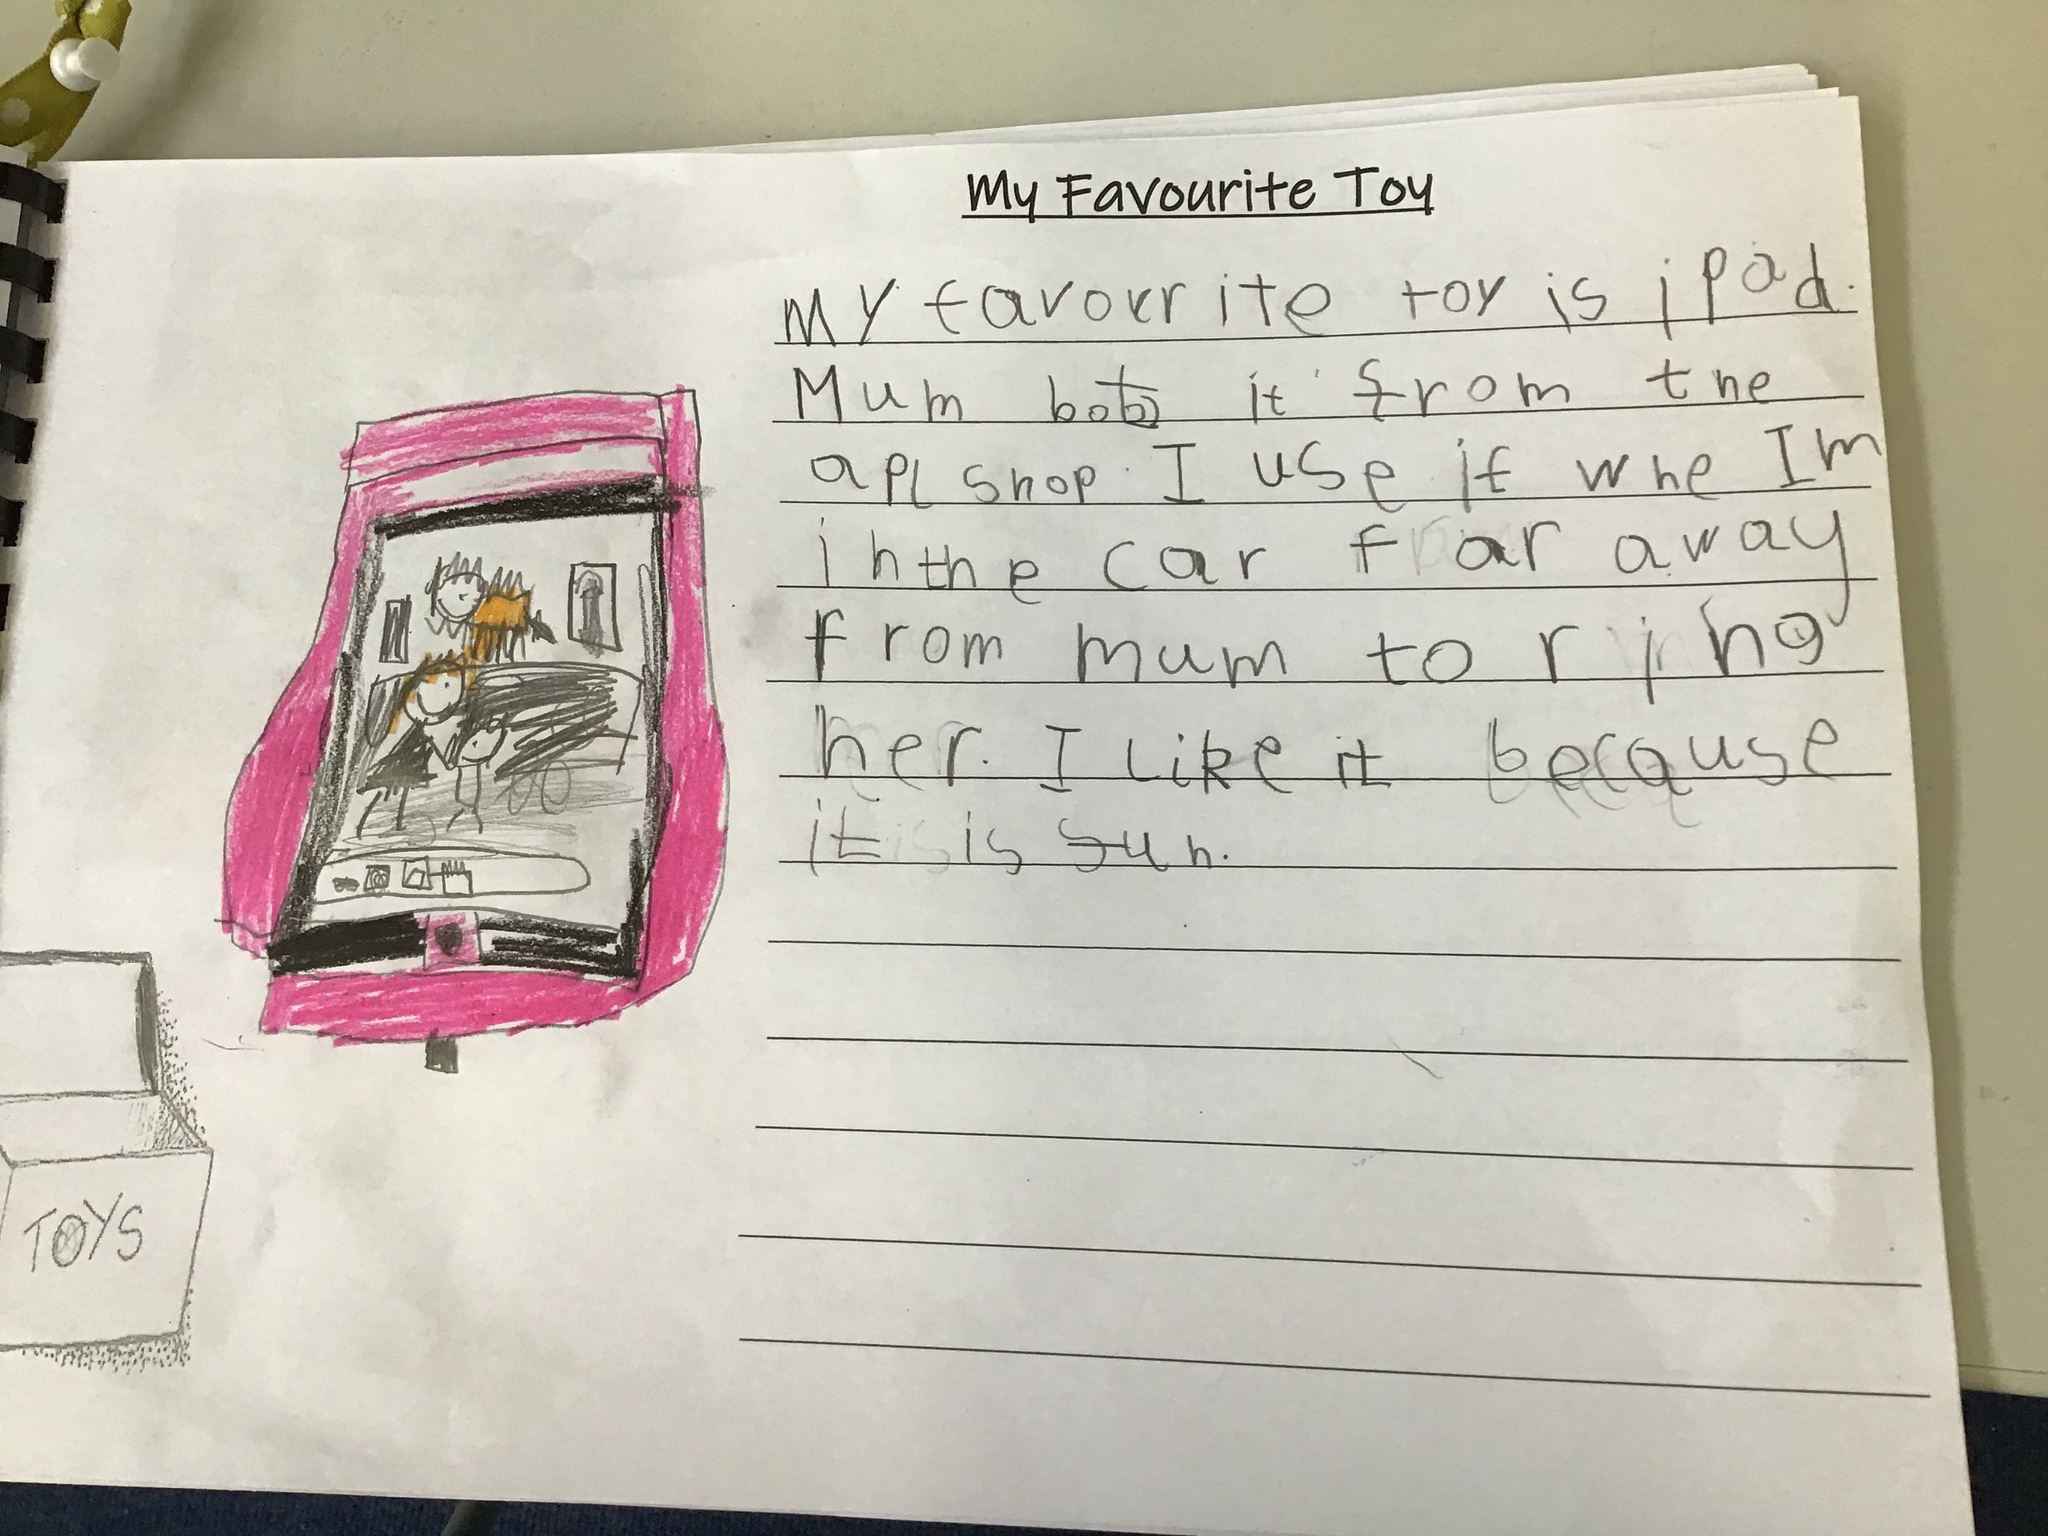 My Favourite Toy
My favourite toy is ipad.
Mum bot it from the
apl shop. I use it whe Im
in the car far away
from mum to ring
her. I like it because
it is fun.
TOYS